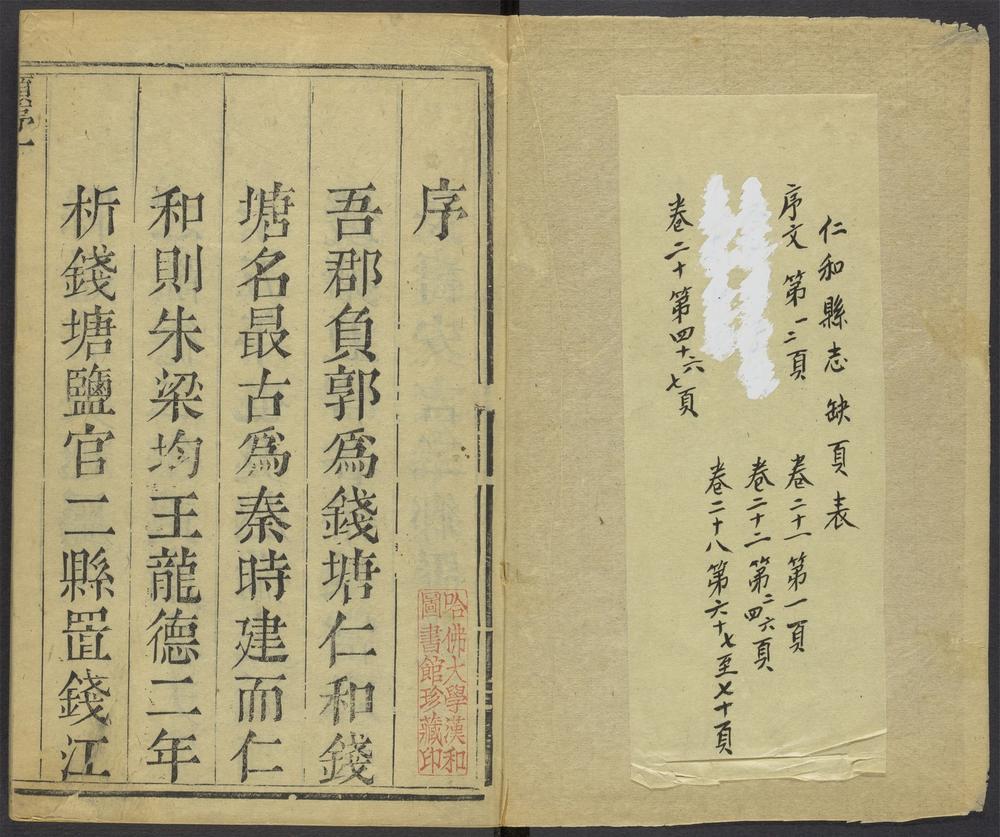 仁和縣志缺頁表
序文第一二頁
卷二十第四十六七頁
卷二十一第一頁
卷二十二第二四六頁
卷二十八第六十七至七十頁
序
吾郡負郭爲錢塘仁和錢
塘名最古爲秦時建而仁
和則朱梁均王龍德二年
析錢塘鹽官二縣置錢江
哈佛大學漢和
圖書館珍藏印